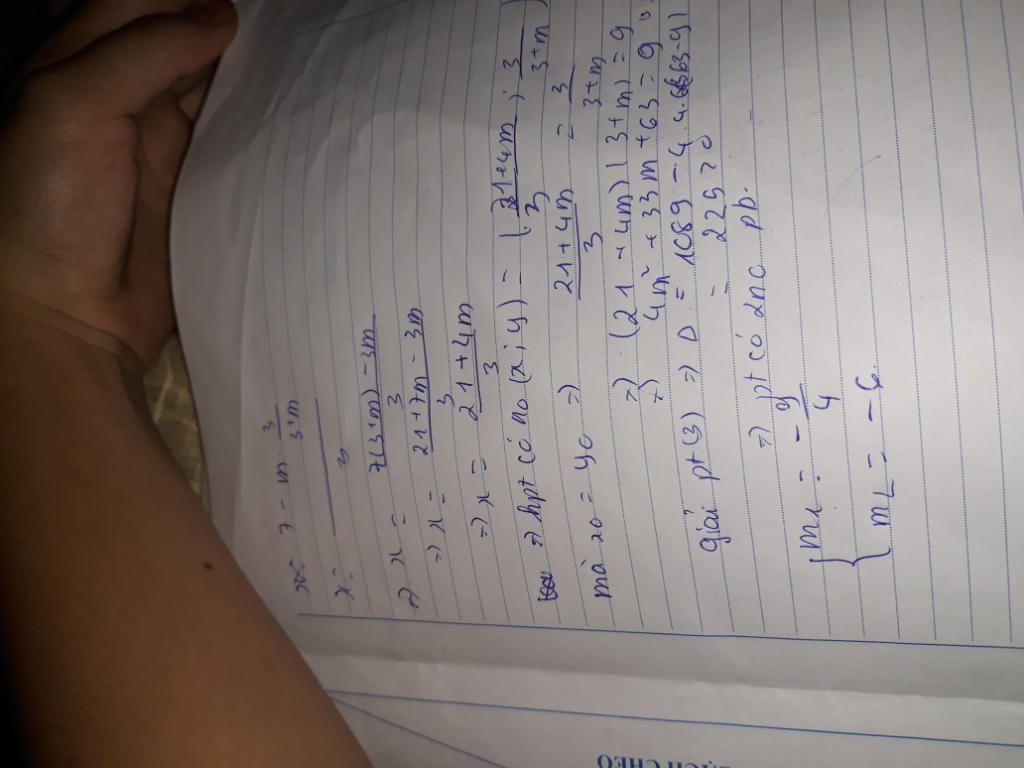 x = 7 - m. 3/(3+m)
x =
=) x = (7(3+m) - 3m)/3
=) x = (21 + 7m - 3m)/3
=) x = (21 + 4m)/3
=) hpt có no (x; y) = ((21+4m)/3; 3/(3+m))
mà x0 = y0 =) (21 + 4m)/3 = 3/(3+m)
=) (21 + 4m)(3+m) = 9
=) 4m² + 33m + 63 = 9
giải pt (3) =) Δ = 1089 - 4.4.(63-9)
= 225 > 0
=) pt có 2no pb.
{ m1 = - 9/4
m2 = - 6